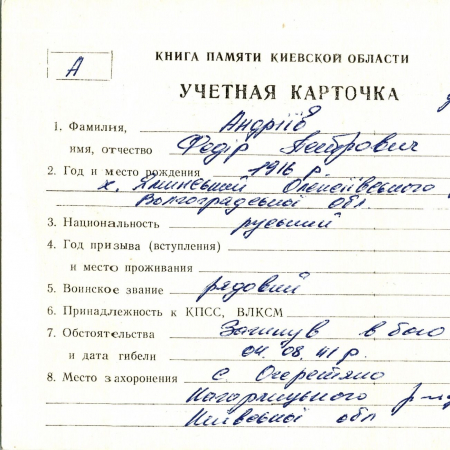 А
КНИГА ПАМЯТИ КИЕВСКОЙ ОБЛАСТИ
УЧЕТНАЯ КАРТОЧКА
1. Фамилия, Андріїв
имя, отчество Федір Петрович
2. Год и место рождения 1916 р.
х. Олексіївського
Волгоградської обл.
3. Национальность руський
4. Год призыва (вступления)
и место проживания
5. Воинское звание рядовий
6. Принадлежность к КПСС, ВЛКСМ
7. Обстоятельства Загинув в бою
и дата гибели 04.08.41 р.
8. Место захоронения с. Очеретяно
Кагарлицького р-ну
Київської обл